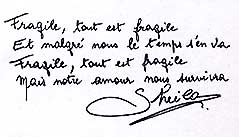 Fragile, tout est fragile
Et malgré nous le temps s'en va
Fragile, tout est fragile
Mais notre amour nous survivra
Sheila